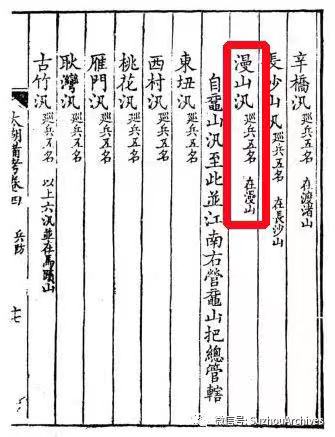 辛橋汛 廵兵五名 在渡渚山
長沙山汛 廵兵五名 在長沙山
漫山汛 廵兵五名 在漫山
自黿山汛至此並江南右營黿山把總管轄
東㘭汛 廵兵五名
西村汛 廵兵五名
桃花汛 廵兵五名
雁門汛 廵兵五名
耿灣汛 廵兵五名
古竹汛 廵兵五名 以上六汛並在馬蹟山
太湖備考卷四 兵防 十七
微信号: SuzhouArchives